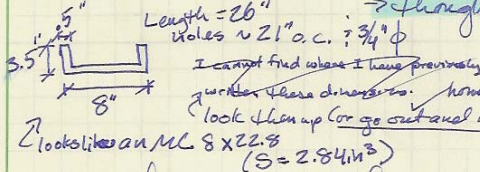 → though
.5"
Length = 26"
Holes ~ 21" o.c. ; 3/4" ϕ
3.5"
I cannot find where I have previously
written these dimensions.
8"
look them up (or go out and
looks like an MC 8 x 22.8
(S = 2.84 in³)